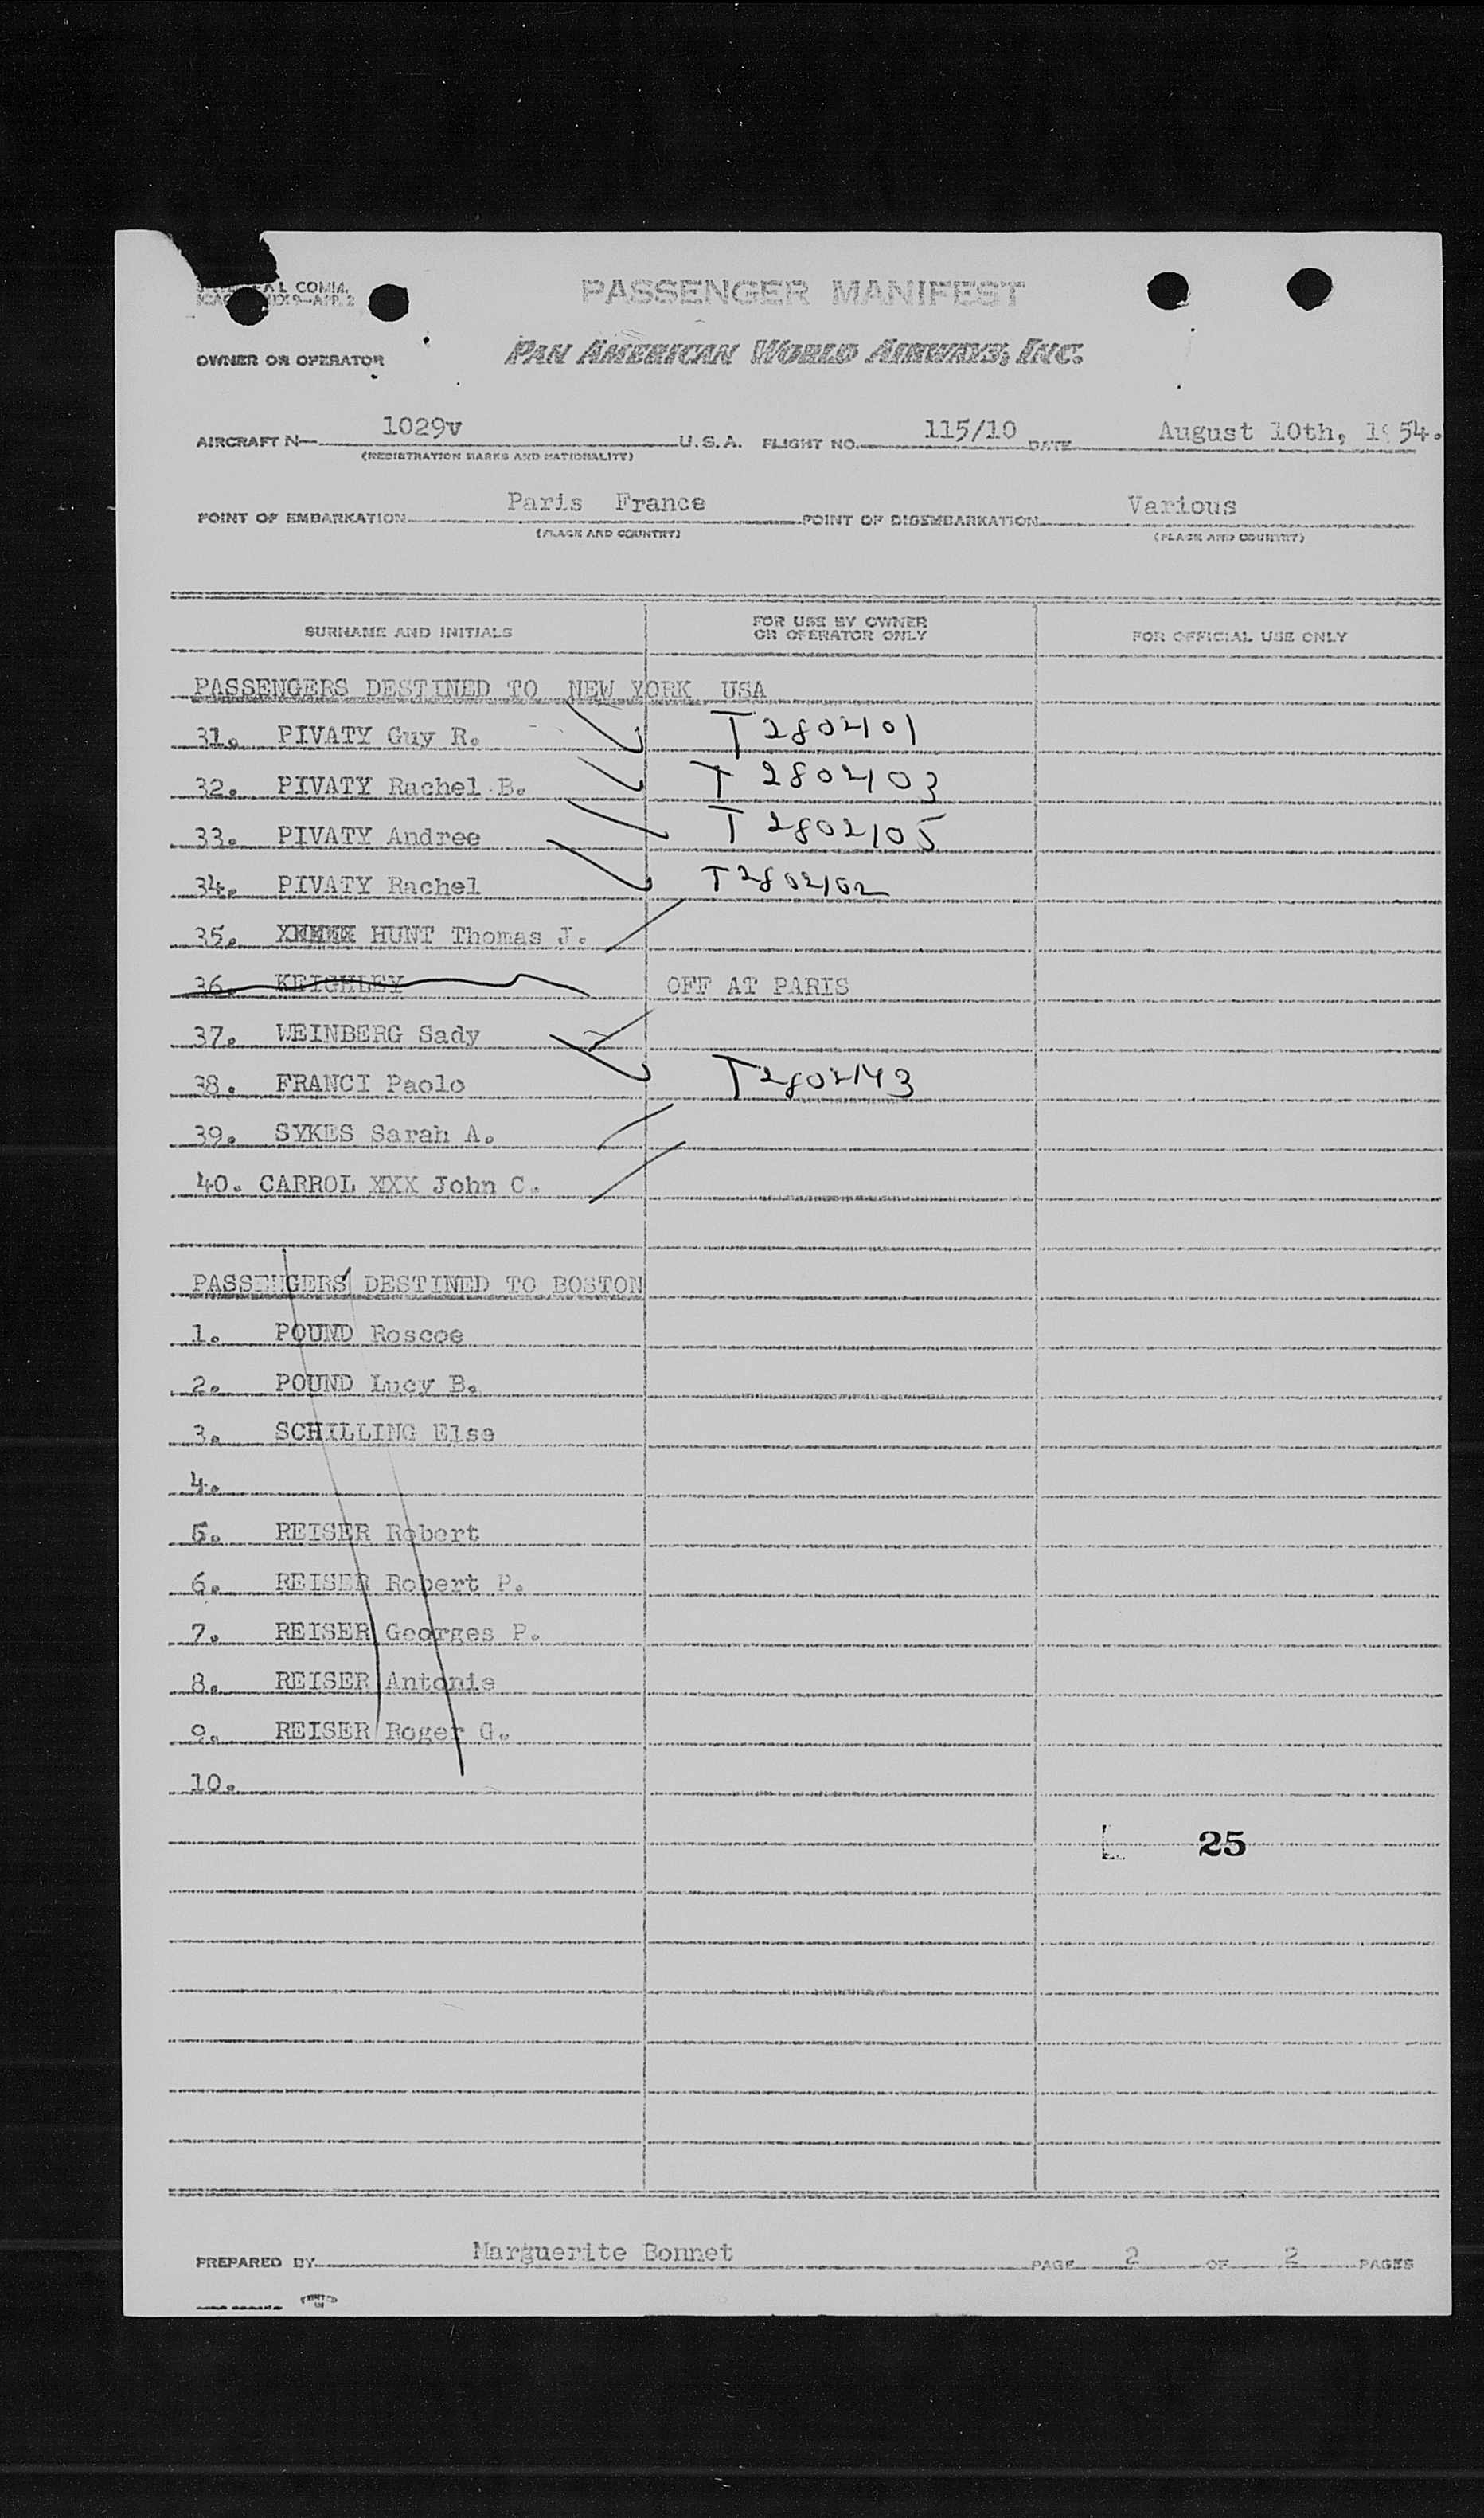 PASSENGER MANIFEST
COMM.
OWNER OR OPERATOR PAN AMERICAN WORLD AIRWAYS, INC.
AIRCRAFT N— 1029v U.S.A. FLIGHT NO. 115/10 DATE August 10th, 1954.
(REGISTRATION MARKS AND NATIONALITY)
POINT OF EMBARKATION Paris France POINT OF DISEMBARKATION Various
(PLACE AND COUNTRY) (PLACE AND COUNTRY)
SURNAME AND INITIALS FOR USE BY OWNER OR OPERATOR ONLY FOR OFFICIAL USE ONLY
PASSENGERS DESTINED TO NEW YORK USA
31. PIVATY Guy R. T 2802101
32. PIVATY Rachel B. T 2802103
33. PIVATY Andree T 2802105
34. PIVATY Rachel T 2802102
35. HUNT Thomas J.
36. KEIGHLEY OFF AT PARIS
37. WEINBERG Sady
38. FRANCI Paolo T 2802143
39. SYKES Sarah A.
40. CARROL XXX John C.
PASSENGERS DESTINED TO BOSTON
1. POUND Roscoe
2. POUND Lucy B.
3. SCHILLING Else
4.
5. REISER Robert
6. REISER Robert P.
7. REISER Georges P.
8. REISER Antonie
9. REISER Roger G.
10.
25
PREPARED BY Marguerite Bonnet PAGE 2 OF 2 PAGES
PRINTED IN